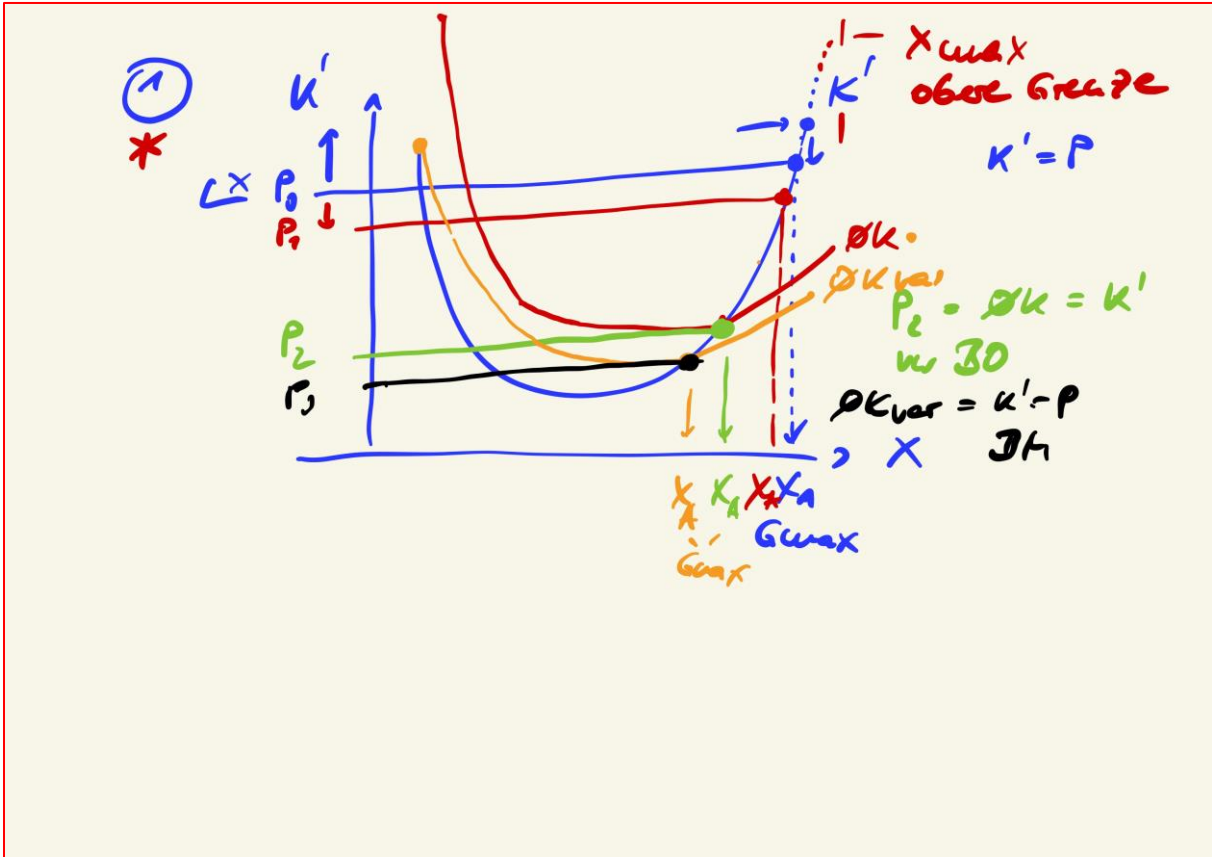 1
*
K'
P₀
P₁
P₂
P₃
K'
Xmax
obere Grenze
K' = P
ØK
ØKvar
P₂ = ØK = K'
BO
ØKvar = K' = P
BM
X
X_A
X_A
X_A
X_A
Gmax
Gmax